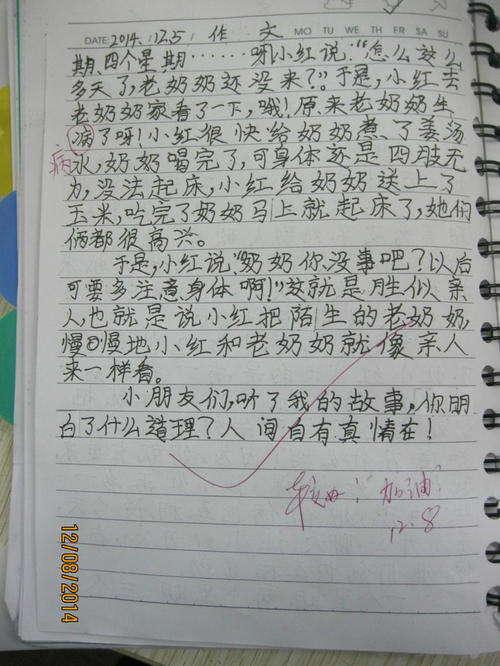 DATE: 2014.12.5 作文 MO TU WE TH FR SA SU
期、四个星期……呀!小红说:"怎么这么
多天了,老奶奶还没来?"于是,小红去
老奶奶家看了一下,哦!原来老奶奶生
病了呀!小红很快给奶奶煮了姜汤
病
水,奶奶喝完了,可身体还是四肢无
力,没法起床,小红给奶奶送上了
玉米,吃完了奶奶马上就起床了,她们
俩都很高兴。
于是,小红说:"奶奶你没事吧?以后
可要多注意身体啊!"这就是胜似亲
人,也就是说小红把陌生的老奶奶,
慢慢地小红和老奶奶就像亲人
来一样看。
小朋友们,听了我的故事,你明
白了什么道理?人间自有真情在!
"加油"
12.8
12/08/2014